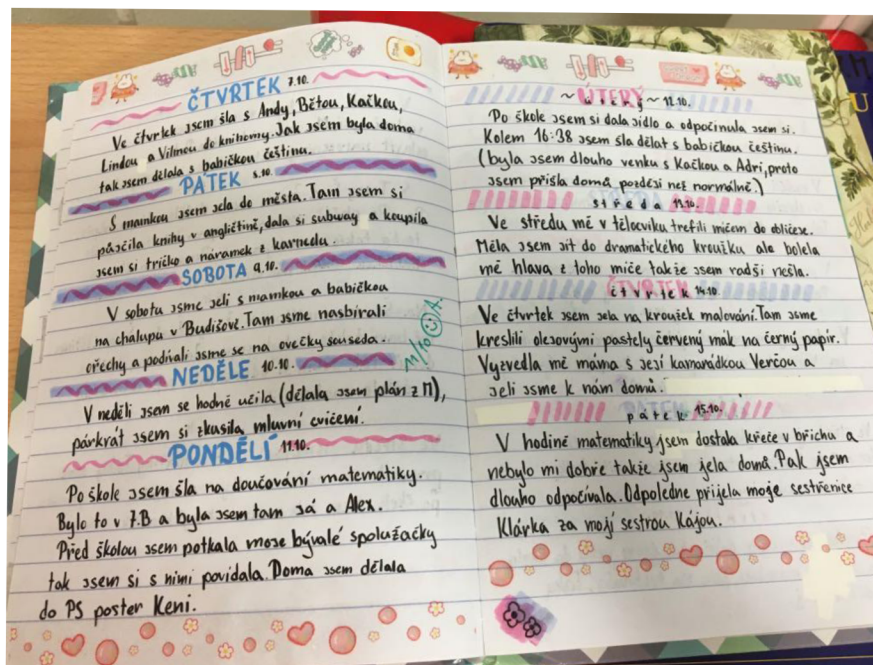 ČTVRTEK 7.10.
Ve čtvrtek jsem šla s Andy, Bětou, Kačkou,
Lindou a Vilmou do knihovny. Jak jsem byla doma
tak jsem dělala s babičkou češtinu.
PÁTEK 8.10.
S mamkou jsem jela do města. Tam jsem si
půjčila knihy v angličtině, dala si subway a koupila
jsem si tričko a náramek z karnedu.
SOBOTA 9.10.
V sobotu jsme jeli s mamkou a babičkou
na chalupu v Budišově. Tam jsme nasbírali
ořechy a podívali jsme se na ovečky souseda.
11/10
NEDĚLE 10.10.
V neděli jsem se hodně učila (dělala jsem plán z M),
párkrát jsem si zkusila mluvní cvičení.
PONDĚLÍ 11.10.
Po škole jsem šla na doučování matematiky.
Bylo to v 7.B a byla jsem tam já a Alex.
Před školou jsem potkala moje bývalé spolužačky
tak jsem si s nimi povídala. Doma jsem dělala
do PS poster Keni.
~ ÚTERÝ ~ 12.10.
Po škole jsem si dala jídlo a odpočinula jsem si.
Kolem 16:38 jsem šla dělat s babičkou češtinu.
(byla jsem dlouho venku s Kačkou a Adri, proto
jsem přišla domů později než normálně.)
středa 13.10.
Ve středu mě v tělocviku trefili míčem do obličeje.
Měla jsem jít do dramatického kroužku ale bolela
mě hlava z toho míče takže jsem radši nešla.
čtvrtek 14.10.
Ve čtvrtek jsem jela na kroužek malování. Tam jsme
kreslili olejovými pastely červený mák na černý papír.
Vyzvedla mě máma s její kamarádkou Verčou a
jeli jsme k nám domů.
pátek 15.10.
V hodině matematiky jsem dostala křeče v břichu a
nebylo mi dobře takže jsem jela domů. Pak jsem
dlouho odpočívala. Odpoledne přijela moje sestřenice
Klárka za mojí sestrou Kájou.